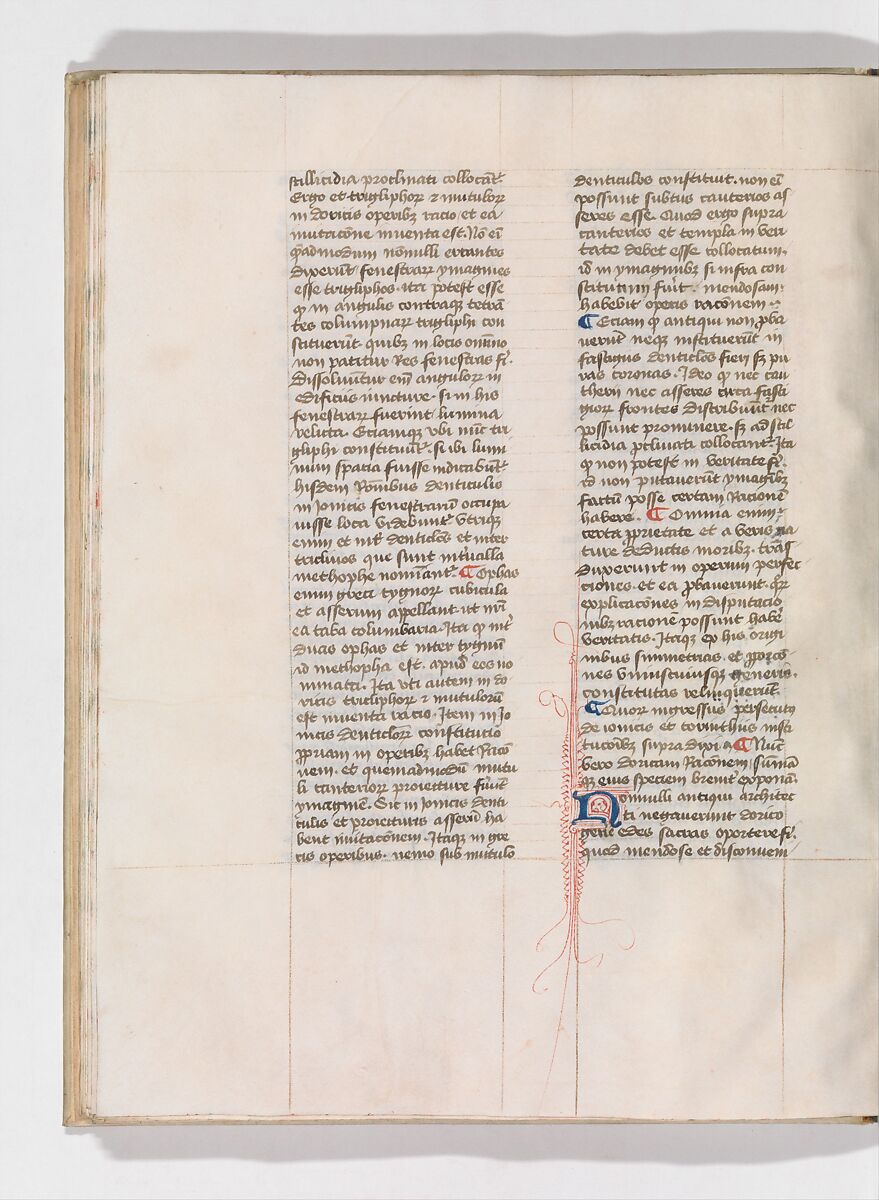 stillicidia proclinati collocāt᷑
Ergo et trigliphoꝝ ⁊ mutuloꝝ
in doricis operibꝫ racio et ea
mutacōne inuenta est. Nō eī
q̄admodum nōnulli errantes
dixerūt fenestraꝝ ymagines
esse trigliphos. ita potest esse
ꝙ in angulis contraqꝫ tetrā
tes columpnaꝝ trigliphi con
stituerūt quibꝫ in locis omīno
non patitur Res fenestras fi᷑.
Dissoluūtur eīm anguloꝝ in
edificiis iuncture. si in his
fenestraꝝ fuerint lumina
relicta. Eciamqꝫ vbi nūc tri
gliphi constituūt᷑. si ibi lumi
num spacia fuisse iudicabūt᷑
hisdem Rōnibus denticulis
in Ionicis fenestrarū occupa
uisse loca videbunt᷑ vtriqꝫ
enim et int᷑ denticlos et inter
triclinos que sunt int᷑ualla
methophe nomīant᷑. ¶ Ophas
enim greci tygnoꝝ cubicula
et asserum appellant. ut nr̄i
ea caba columbaria. Ita ꝙ int᷑
duas ophas et inter tygnū
id methopha est. apud eos no
minata. Ita vti autem in do
ricis tricliphoꝝ ⁊ mutulorū
est inuenta racio. Item in Io
nicis denticloꝝ constitutio
ꝓpriam in operibꝫ habet Racō
nem. et quemadmodū mutu
li canterioꝝ proiecture fūt
ymaginē. Sic in Ionicis denti
culis et proiecturis asserū ha
bent imitacōnem. Itaqꝫ in gre
cis operibus. nemo sub mutulo
denticulos constituit. non eī
possunt subtus cauterios as
seres esse. Quod ergo supra
canterios et templa in veri
tate debet esse collocatum.
id in ymaginibꝫ si infra con
stitutum fūit. mendosam
habebit operis racōnem.
¶ Eciam ꝙ antiqui non ꝓba
uerūt neqꝫ instituerūt in
fastigiis denticlos fieri sꝫ pu
ras coronas. Ideo ꝙ nec cau
therii nec asseres circa fasti
gioꝝ frontes distribuūt᷑ nec
possunt prominere. sꝫ ad stil
licidia ꝓcliuati collocant᷑. Ita
ꝙ non potest in veritate fi᷑.
id non putauerūt ymagībꝫ
factū posse certam Racionē
habere. ¶ Omnia enim
certa ꝓprietate et a veris na
ture deductis moribꝫ. trās
duxerunt in operum perfec
ciones. et ea ꝓbauerunt. quoꝝ
explicacōnes in disputacio
nibꝫ racionē possunt habē
veritatis. Itaqꝫ ex his origi
nibus simmetrias. et ꝓporcio
nes vniuscuiusqꝫ generis.
constitutas reliquerūt.
¶ Quoꝝ ingressus persecutꝰ
de ionicis et corinthiis insti
tucōibꝫ supra dixi. ¶ Nūc
vero doricam Racōnem sūmā
qꝫ eius speciem breuit᷑ exponā.
Nonnulli antiqui architec
ti negauerunt dorico
gene᷑ edes sacras oportere fi᷑.
quod mendose et disconueni